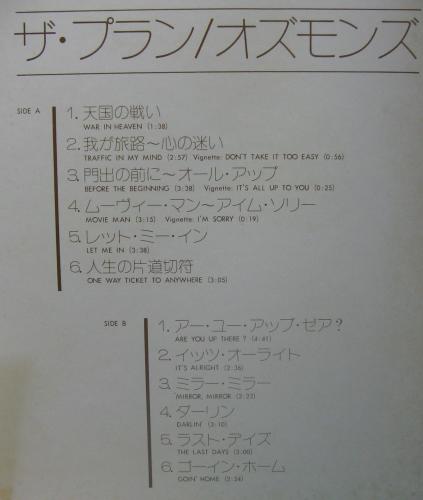 ザ・プラン/オズモンズ
SIDE A
1. 天国の戦い
WAR IN HEAVEN (1:38)
2. 我が旅路〜心の迷い
TRAFFIC IN MY MIND (2:57) Vignette: DON'T TAKE IT TOO EASY (0:56)
3. 門出の前に〜オール・アップ
BEFORE THE BEGINNING (3:38) Vignette: IT'S ALL UP TO YOU (0:25)
4. ムーヴィー・マン〜アイム・ソリー
MOVIE MAN (3:15) Vignette: I'M SORRY (0:19)
5. レット・ミー・イン
LET ME IN (3:38)
6. 人生の片道切符
ONE WAY TICKET TO ANYWHERE (3:05)
SIDE B
1. アー・ユー・アップ・ゼア?
ARE YOU UP THERE? (4:41)
2. イッツ・オーライト
IT'S ALRIGHT (2:36)
3. ミラー・ミラー
MIRROR, MIRROR (2:22)
4. ダーリン
DARLIN' (3:10)
5. ラスト・デイズ
THE LAST DAYS (3:00)
6. ゴーイン・ホーム
GOIN' HOME (2:24)